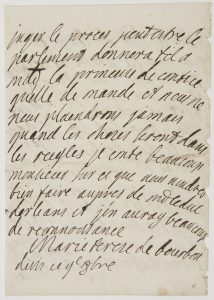 juger le proces peut estre le
parlement donnera til a
md la princesse de contice
quelle de mande et nous ne
nous plaindrons jamais
quand les choses seront dans
les reigles je conte beaucoup
monsieur sur ce que vous voudres
bien faire aupres de mr le duc
dorleans et jen auray beaucoup
de reconnoissance
Marie Terese de Bourbon